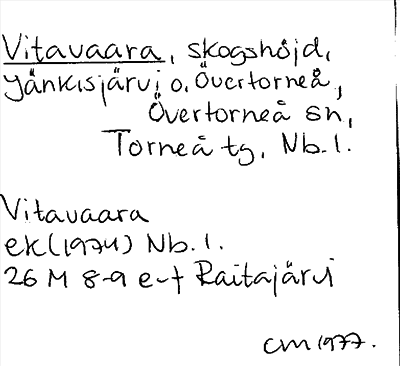 Vitavaara, skogshöjd,
Jänkisjärvi o. Övertorneå,
Övertorneå sn,
Torneå tg, Nb. l.
Vitavaara
ek (1974) Nb. l.
26 M 8-9 e-f Raitajärvi
CM 1977.